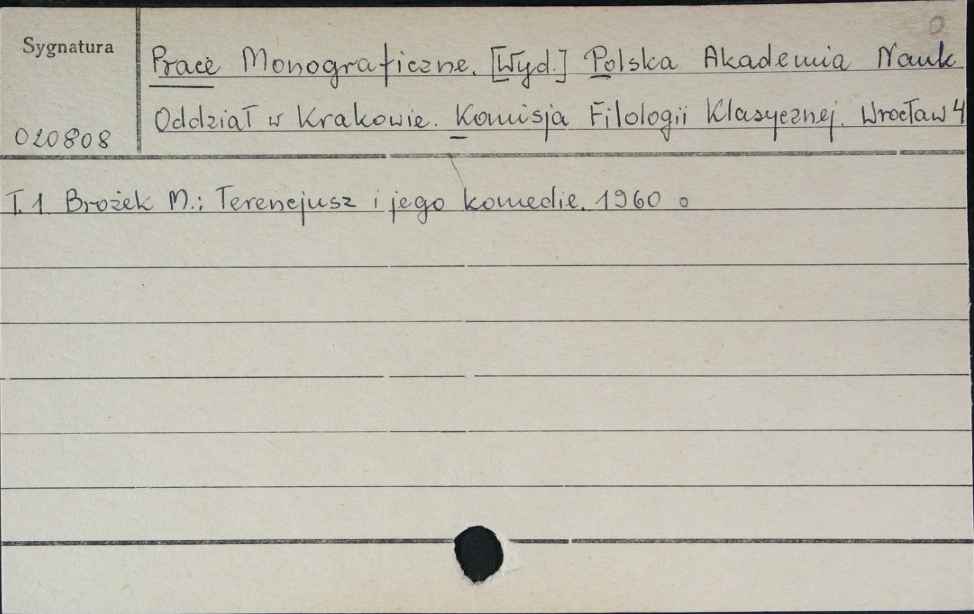 0
Sygnatura
Prace Monograficzne. [Wyd.] Polska Akademia Nauk
Oddział w Krakowie. Komisja Filologii Klasycznej. Wrocław 4
020808
T. 1 Brożek M.: Terencjusz i jego komedie. 1960 o